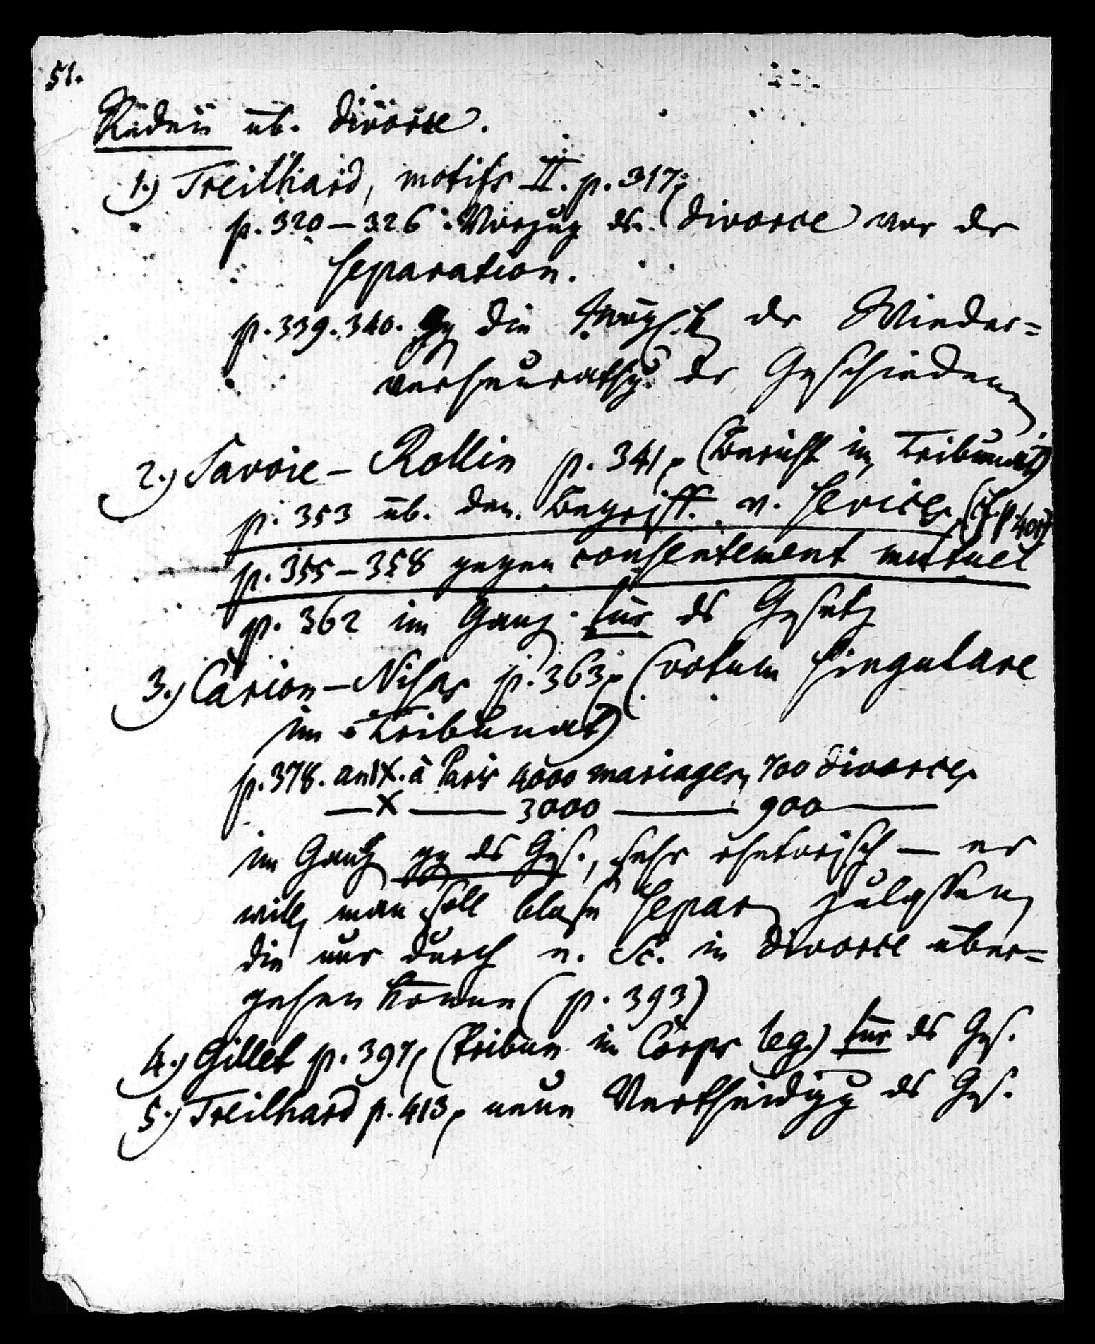 51.
Reden üb. divorce.
1.) Treilhard, motifs II. p. 317,
p. 320–326 Vorzug ds. divorce vor dr
separation.
p. 339. 340. gg die dr Wieder=
verheurathg. dr Geschiedenen
2.) Savoie–Rollin p. 341, (Bericht im Tribunat)
p. 353 üb. den Begriff v. sevices, (cf p 401)
p. 355–358 gegen consentement mutuel
p. 362 im Ganz. für ds Gesetz
3.) Carion–Nisas p. 363, (votum singulare
im Tribunat)
p. 378. an IX. à Paris 4000 mariages, 700 divorces
— X —— 3000 —— 900 ——
im Ganz gg ds Ges., sehr rhetorisch — er
will, man soll bloß separ zulassen,
die nur durch in divorce über=
gehen könne (p. 393)
4.) Gillet p. 397, (Tribun im Corps leg.) für ds Ges.
5.) Treilhard p. 413, neue Vertheidigg ds Ges.